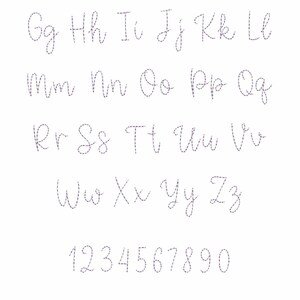 Gg Hh Ii Jj Kk Ll
Mm Nn Oo Pp Qq
Rr Ss Tt Uu Vv
Ww Xx Yy Zz
1234567890